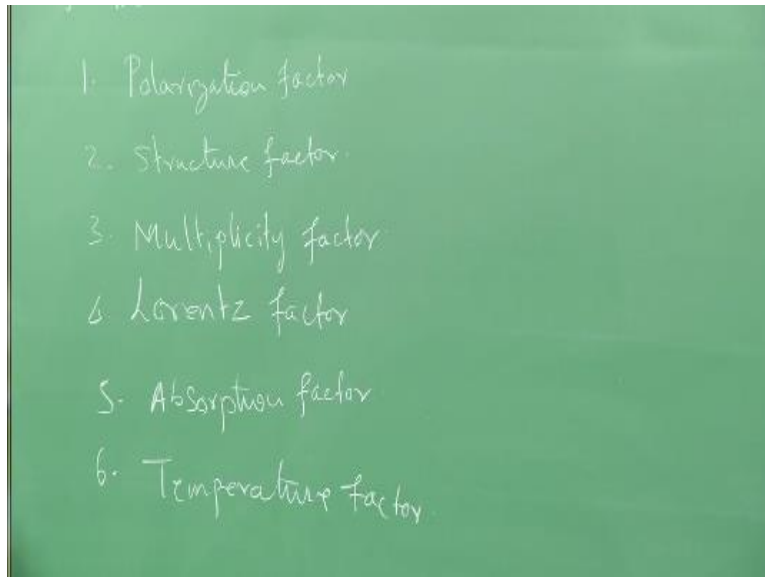 1. Polarization factor
2. Structure factor.
3. Multiplicity factor
4 Lorentz factor
5. Absorption factor
6. Temperature factor.